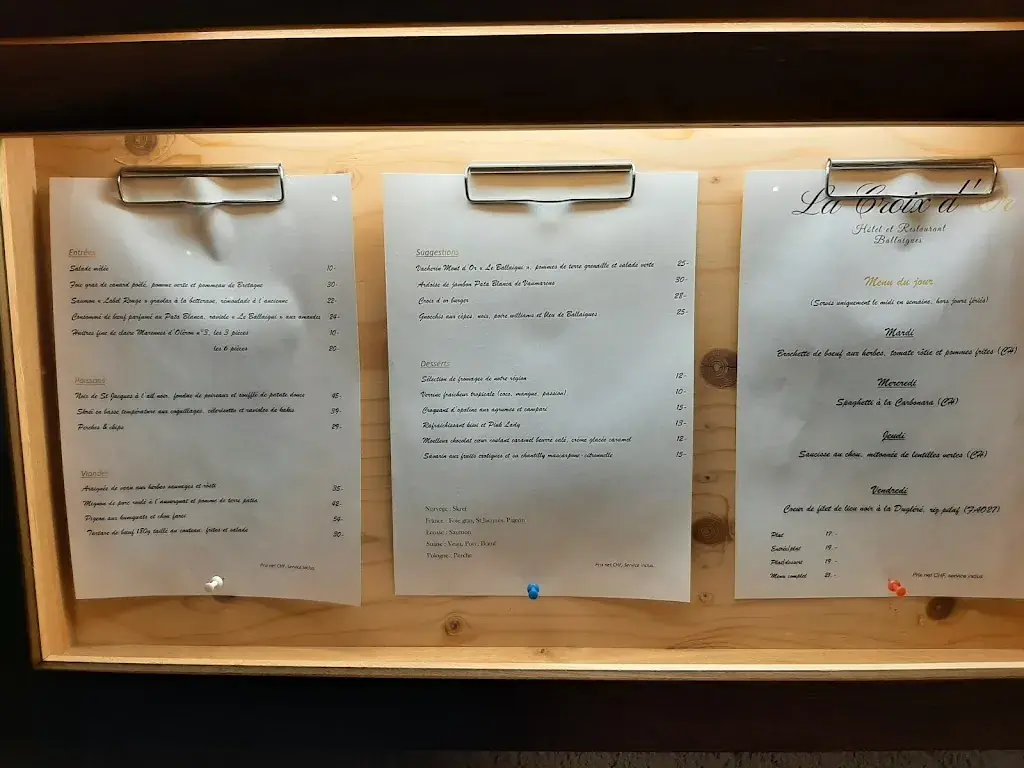 Entrées
Salade mêlée 10.-
Foie gras de canard poêlé, pomme verte et pommeau de Bretagne 30.-
Saumon « Label Rouge » gravlax à la betterave, rémoulade à l'ancienne 22.-
Consommé de bœuf parfumé au Pata Blanca, raviole « Le Ballaigui » aux amandes 24.-
Huîtres fine de claire Marennes d'Oléron n°3, les 3 pièces 10.-
les 6 pièces 20.-
Poissons
Noix de St Jacques à l'ail noir, fondue de poireaux et soufflé de patate douce 45.-
Skrei en basse température aux coquillages, célerisotto et ravioles de kakis 39.-
Perches & chips 29.-
Viandes
Araignée de veau aux herbes sauvages et rösti 35.-
Mignon de porc roulé à l'auvergnat et pomme de terre patia 42.-
Pigeon aux kumquats et chou farci 54.-
Tartare de bœuf 180g taillé au couteau, frites et salade 30.-
Prix net CHF, service inclus.
Suggestions
Vacherin Mont d'Or « Le Ballaigui », pommes de terre grenaille et salade verte 25.-
Ardoise de jambon Pata Blanca de Vaumarcus 30.-
Croix d'or burger 28.-
Gnocchis aux cèpes, noix, poire williams et bleu de Ballaigues 25.-
Desserts
Sélection de fromages de notre région 12.-
Verrine fraicheur tropicale (coco, mangue, passion) 10.-
Croquant d'opaline aux agrumes et campari 15.-
Rafraichissant kiwi et Pink Lady 13.-
Moelleux chocolat cœur coulant caramel beurre salé, crème glacée caramel 12.-
Savarin aux fruits exotiques et sa chantilly mascarpone-citronnelle 15.-
Norvège : Skrei
France : Foie gras, St Jacques, Pigeon
Ecosse : Saumon
Suisse : Veau, Porc, Bœuf
Pologne : Perche
Prix net CHF, Service inclus.
La Croix d'Or
Hôtel et Restaurant
Ballaigues
Menu du jour
(Servis uniquement le midi en semaine, hors jours fériés)
Mardi
Brochette de boeuf aux herbes, tomate rôtie et pommes frites (CH)
Mercredi
Spaghetti à la Carbonara (CH)
Jeudi
Saucisse au chou, mitonnée de lentilles vertes (CH)
Vendredi
Coeur de filet de lieu noir à la Dugléré, riz pilaf (FAO27)
Plat 17.-
Entrée/plat 19.-
Plat/dessert 19.-
Menu complet 21.-
Prix net CHF, service inclus